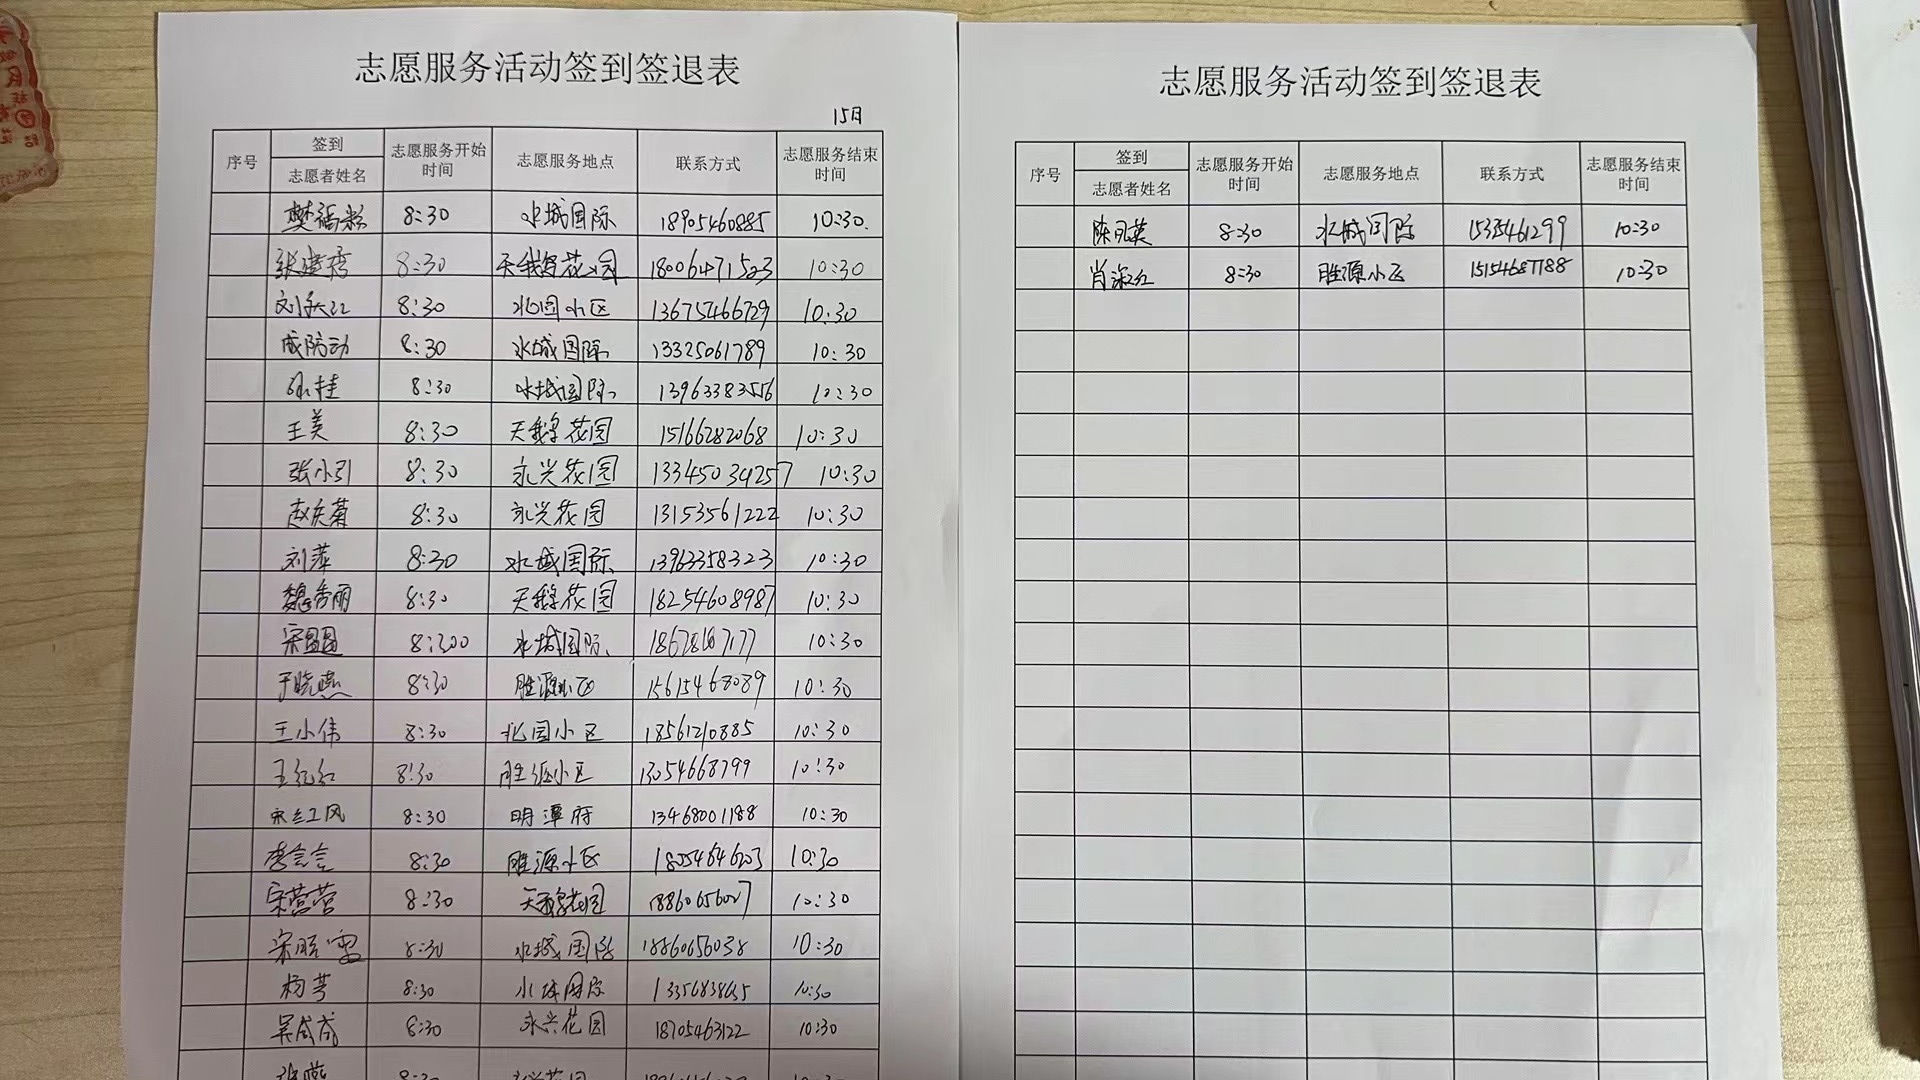 志愿服务活动签到签退表
15日
序号 签到 志愿者姓名 志愿服务开始时间 志愿服务地点 联系方式 志愿服务结束时间
8:30 水城国际 18905460885 10:30.
8:30 天鹅花园 18006471523 10:30
8:30 北园小区 13675466729 10:30
8:30 水城国际 13325061789 10:30
8:30 水城国际 13963383556 10:30
王美 8:30 天鹅花园 15166282068 10:30
张小引 8:30 永兴花园 13345034257 10:30
8:30 永兴花园 13153561222 10:30
刘萍 8:30 水城国际 13963358323 10:30
魏秀丽 8:30 天鹅花园 18254608987 10:30
宋圆圆 8:300 水城国际 10:30
于晓燕 8:30 胜源小区 15615468089 10:30
王小伟 8:30 北园小区 18561210885 10:30
王红红 8:30 胜源小区 13054668799 10:30
8:30 明潭府 13468001188 10:30
李会会 8:30 胜源小区 18054646203 10:30
宋莹莹 8:30 天鹅花园 18860656027 10:30
宋晓雪 8:30 水城国际 18860656038 10:30
杨芳 8:30 水城国际 10:30
8:30 永兴花园 18705463122 10:30
志愿服务活动签到签退表
序号 签到 志愿者姓名 志愿服务开始时间 志愿服务地点 联系方式 志愿服务结束时间
陈凤英 8:30 水城国际 15335461299 10:30
8:30 胜源小区 15154687188 10:30